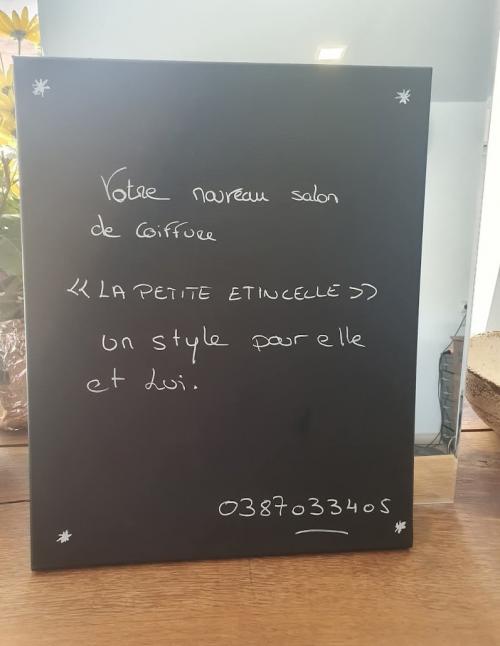 Votre nouveau salon
de coiffure
<< LA PETITE ETINCELLE >>
un style pour elle
et Lui.
0387033405